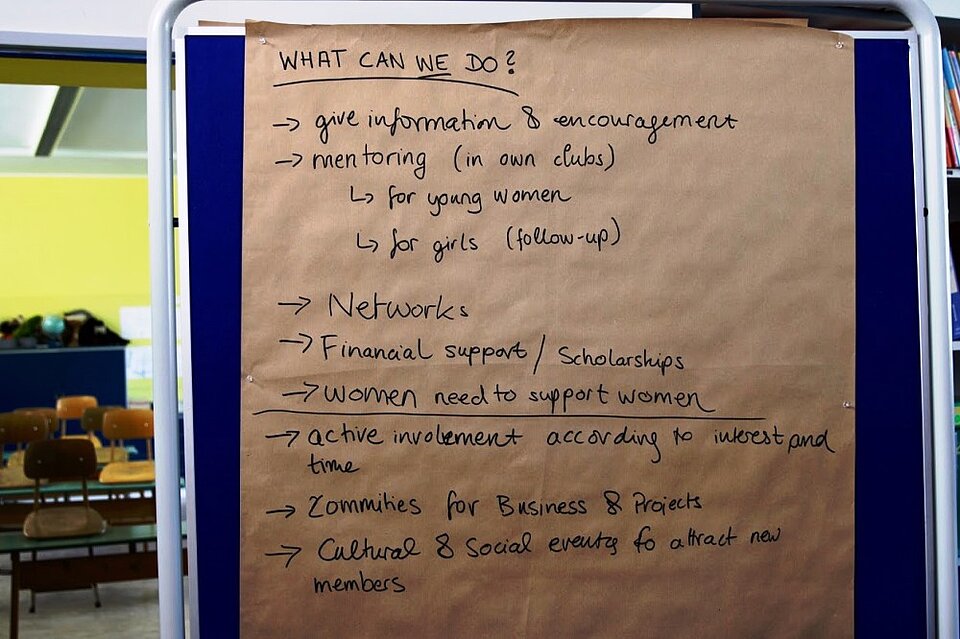 WHAT CAN WE DO?
→ give information & encouragement
→ mentoring (in own clubs)
↳ for young women
↳ for girls (follow-up)
→ Networks
→ Financial support / Scholarships
→ women need to support women
→ active involement according to interest and
time
→ Commities for Business & Projects
→ Cultural & Social events to attract new
members